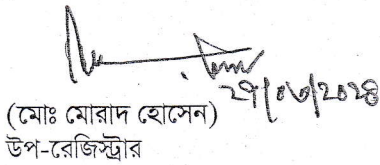 ২৭/০৬/২০২৪
(মোঃ মোরাদ হোসেন)
উপ-রেজিস্ট্রার